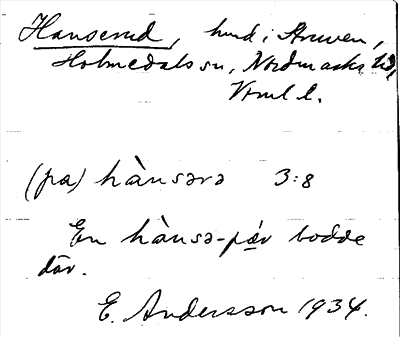 Hanserud, hmd i Åruven,
Holmedals sn, Nordmarks hd,
Vrml l.
(pa) hànsərə 3:8
En hànsə-pǽr bodde
där.
E. Andersson 1934.